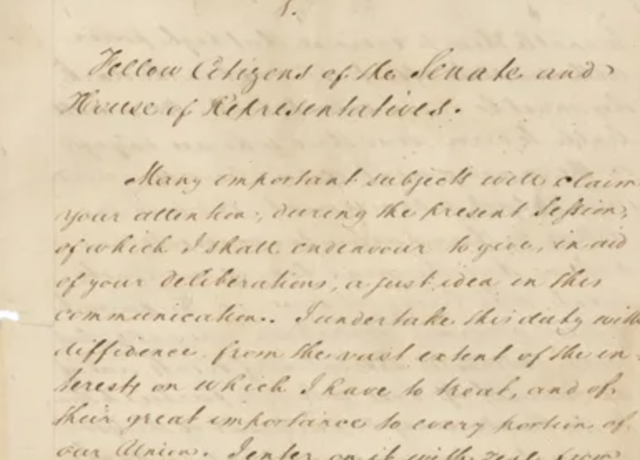 1.
Fellow Citizens of the Senate and
House of Representatives.
Many important subjects will claim
your attention, during the present Session,
of which I shall endeavour to give, in aid
of your deliberations, a just idea in this
communication. I undertake this duty with
diffidence, from the vast extent of the in-
terests on which I have to treat, and of
their great importance to every portion of
our Union. I enter on it with zeal from